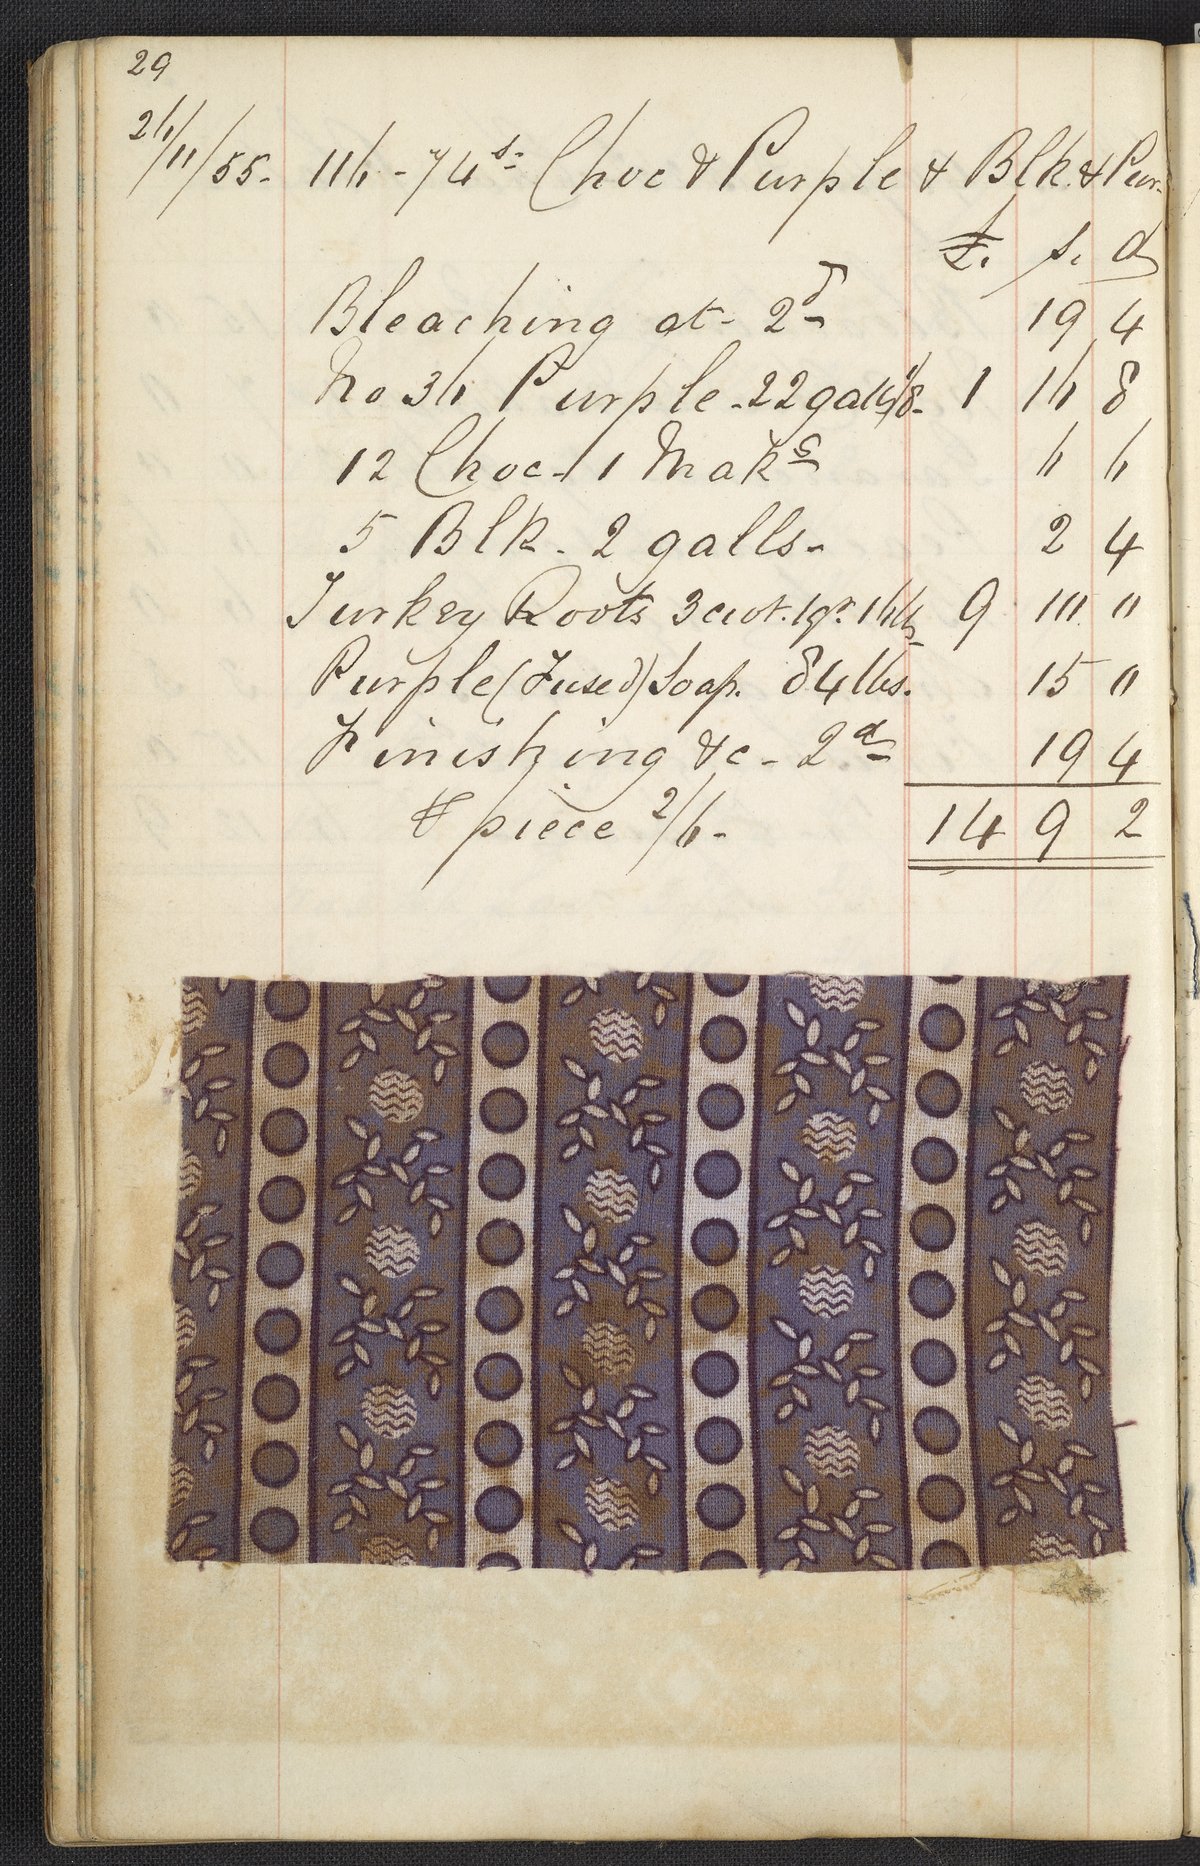 29
26/11/55- 116 - 74s- Choc & Purple & Blk. & Pur-
£. s. d
Bleaching at - 2d- 19 4
No 36 Purple - 22 galls 1/8- 1 16 8
12 Choc - 1 6 6
5 Blk - 2 galls - 2 4
Turkey Roots 3 cwt. 1 qr. 16 lbs 9 10 "
Purple (Fused) Soap. 84 lbs. 15 "
Finishing &c - 2d- 19 4
℘ piece 2/6- 14 9 2